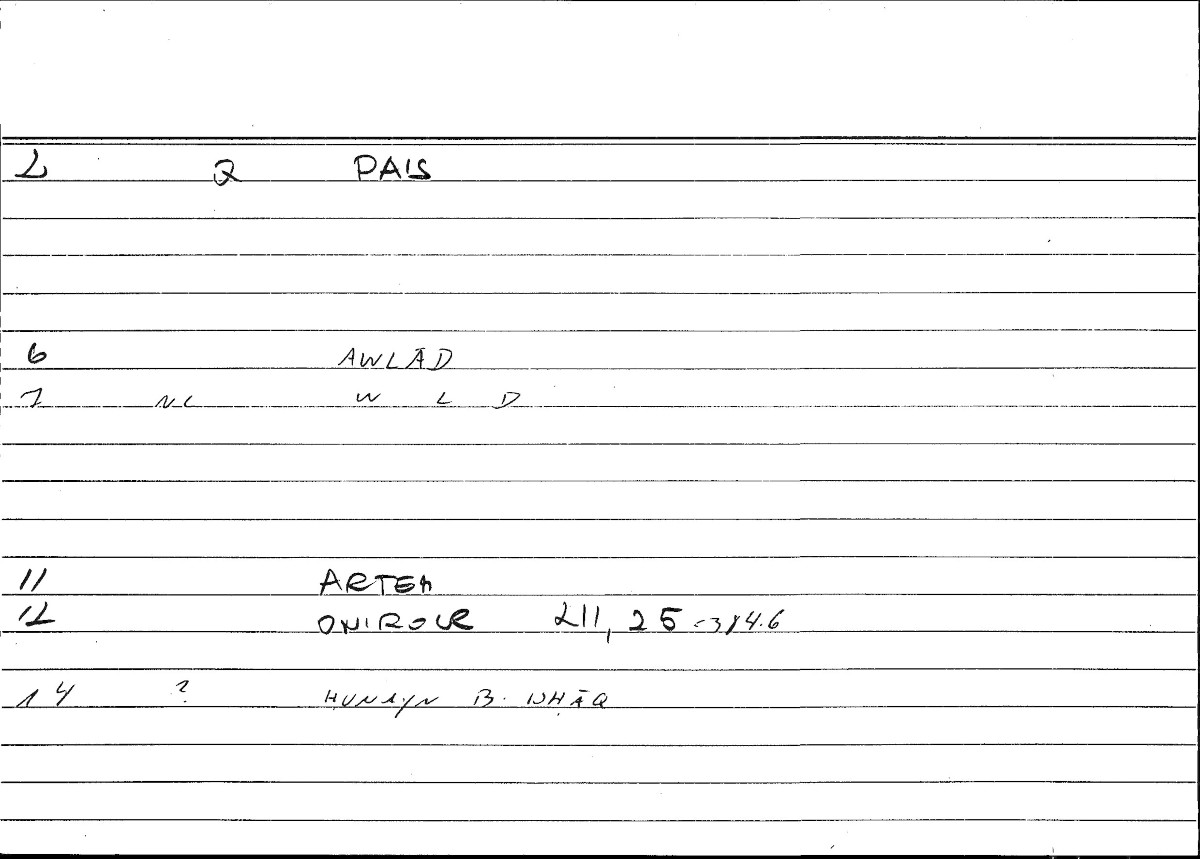 2 Q PAIS
6 AWLĀD
7 NC W L D
11 ARTEM
12 ONIROCR 211, 25 = 384.6
14 ? ḤUNAYN B. ISḤĀQ